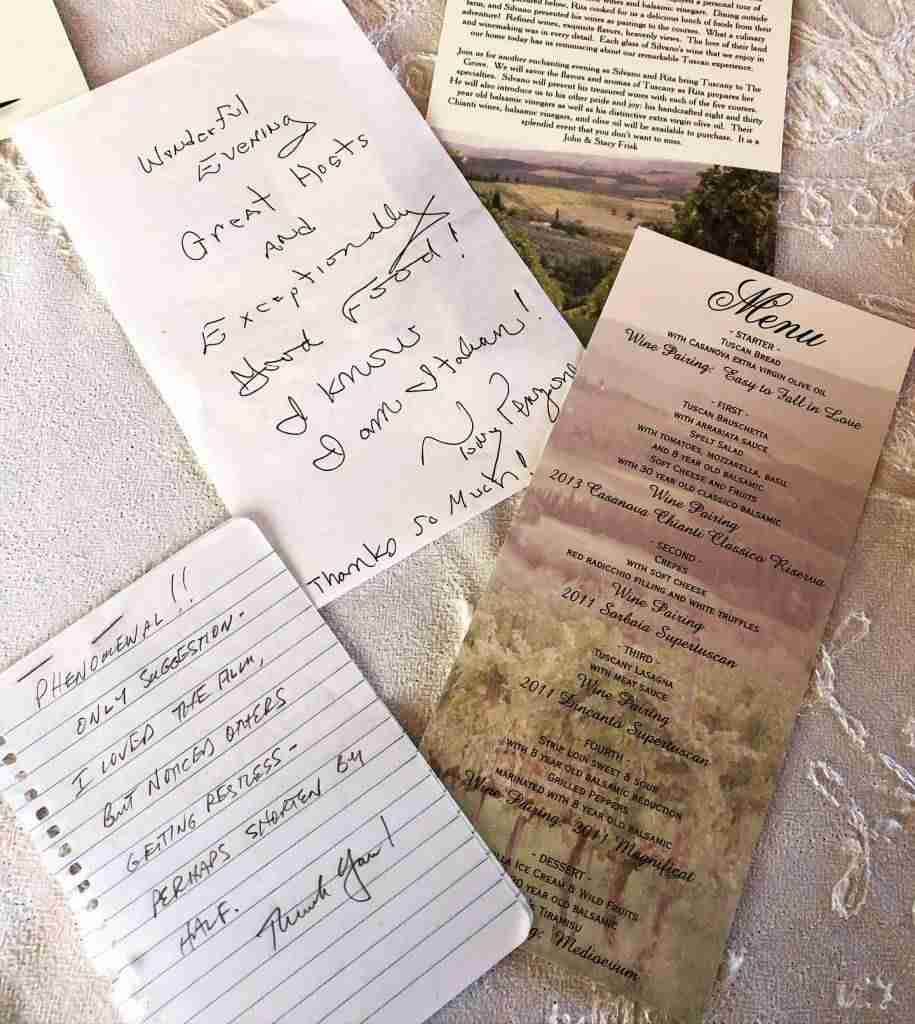 wines and balsamic vinegar. Dining outside
Rita cooked for us a delicious lunch of foods from their
farm, and Silvano presented his wines as pairings to the courses. What a culinary
adventure! Refined wines, exquisite flavors, heavenly views. The love of their land
and winemaking was in every detail. Each glass of Silvano's wine that we enjoy in
our home today has us reminiscing about our remarkable Tuscan experience.
Join us for another enchanting evening as Silvano and Rita bring Tuscany to The
Grove. We will savor the flavors and aromas of Tuscany as Rita prepares her
specialties. Silvano will present his treasured wines with each of the five courses.
He will also introduce us to his other pride and joy: his handcrafted eight and thirty
year old balsamic vinegars as well as his distinctive extra virgin olive oil. Their
Chianti wines, balsamic vinegars, and olive oil will be available to purchase. It is a
splendid event that you don't want to miss.
John & Stacy Frisk
Wonderful
Evening
Great Hosts
And
Exceptionally
Good Food!
I know
I am Italian!
Thanks So Much!
Menu
- Starter -
Tuscan Bread
with Casanova extra virgin olive oil
Wine Pairing: Easy to Fall in Love
- First -
Tuscan Bruschetta
with arrabiata sauce
Spelt Salad
with tomatoes, mozzarella, basil
and 8 year old balsamic
Soft Cheese and Fruits
with 30 year old classico balsamic
Wine Pairing
2013 Casanova Chianti Classico Riserva
- Second -
Crepes
with soft cheese
red radicchio filling and white truffles
Wine Pairing
2011 Sorbaia Supertuscan
- Third -
Tuscany Lasagna
with meat sauce
Wine Pairing
2011 Dincanto Supertuscan
- Fourth -
Strip Loin Sweet & Sour
with 8 year old balsamic reduction
Grilled Peppers
marinated with 8 year old balsamic
Wine Pairing: 2011 Magnificat
- Dessert -
Ice Cream & Wild Fruits
30 year old balsamic
Tiramisu
Medioevum
PHENOMENAL!!
ONLY SUGGESTION -
I LOVED THE FILM,
BUT NOTICED OTHERS
GETTING RESTLESS -
PERHAPS SHORTEN BY
HALF.
Thank You!